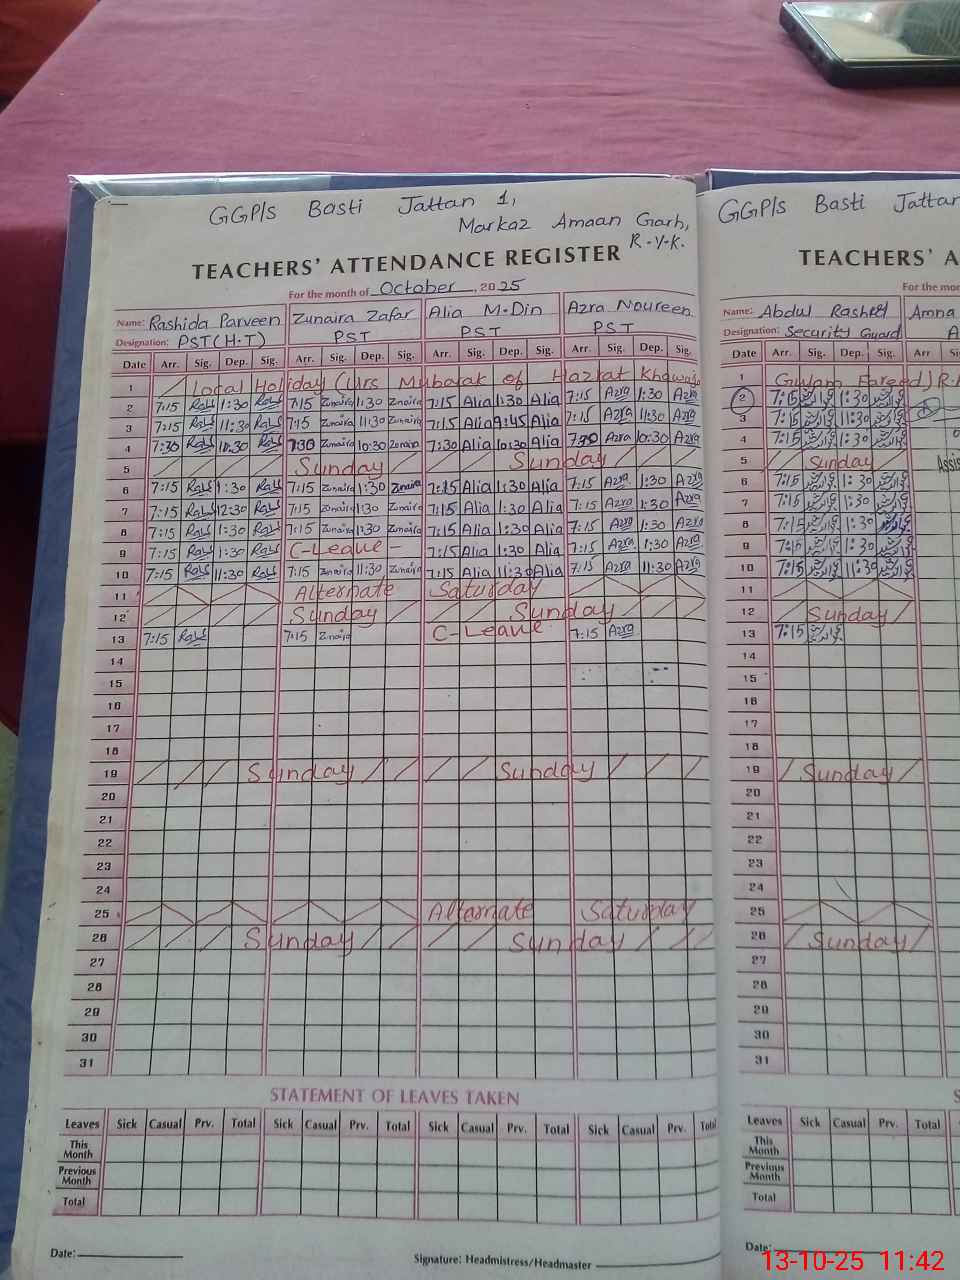 GGP/s Basti Jattan 1,
Markaz Amaan Garh,
R.Y.K.
TEACHERS' ATTENDANCE REGISTER
For the month of October, 2025
Name: Rashida Parveen Zunaira Zafar Alia M.Din Azra Noureen
Designation: PST(H.T) PST PST PST
Date Arr. Sig. Dep. Sig. Arr. Sig. Dep. Sig. Arr. Sig. Dep. Sig. Arr. Sig. Dep. Sig.
1 Local Holiday (Urs Mubarak of Hazrat Khawaja
2 7:15 1:30 7:15 Zunaira 1:30 Zunaira 7:15 Alia 1:30 Alia 7:15 Azra 1:30 Azra
3 7:15 11:30 7:15 Zunaira 11:30 Zunaira 7:15 Alia 9:45 Alia 7:15 Azra 11:30 Azra
4 7:30 10:30 7:30 Zunaira 10:30 Zunaira 7:30 Alia 10:30 Alia 7:30 Azra 10:30 Azra
5 Sunday Sunday
6 7:15 1:30 7:15 Zunaira 1:30 Zunaira 7:15 Alia 1:30 Alia 7:15 Azra 1:30 Azra
7 7:15 12:30 7:15 Zunaira 1:30 Zunaira 7:15 Alia 1:30 Alia 7:15 Azra 1:30 Azra
8 7:15 1:30 7:15 Zunaira 1:30 Zunaira 7:15 Alia 1:30 Alia 7:15 Azra 1:30 Azra
9 7:15 1:30 C-Leave - 7:15 Alia 1:30 Alia 7:15 Azra 1:30 Azra
10 7:15 11:30 7:15 Zunaira 11:30 Zunaira 7:15 Alia 11:30 Alia 7:15 Azra 11:30 Azra
11 Alternate Saturday
12 Sunday Sunday
13 7:15 7:15 Zunaira C-Leave 7:15 Azra
14
15
16
17
18
19 Sunday Sunday
20
21
22
23
24
25 Alternate Saturday
26 Sunday Sunday
27
28
29
30
31
STATEMENT OF LEAVES TAKEN
Leaves Sick Casual Prv. Total Sick Casual Prv. Total Sick Casual Prv. Total Sick Casual Prv. Total
This Month
Previous Month
Total
Date:
Signature: Headmistress/Headmaster
GGP/s Basti Jattan
TEACHERS' A
For the mon
Name: Abdul Rasheed Amna
Designation: Security Guard A
Date Arr. Sig. Dep. Sig. Arr
1 Gulam Fareed) R.
2 7:15 1:30
3 7:15 11:30
4 7:15 1:30
5 Sunday Assis
6 7:15 1:30
7 7:15 1:30
8 7:15 1:30
9 7:15 1:30
10 7:15 11:30
11
12 Sunday
13 7:15
14
15
16
17
18
19 Sunday
20
21
22
23
24
25
26 Sunday
27
28
29
30
31
S
Leaves Sick Casual Prv. Total
This Month
Previous Month
Total
Date:
13-10-25 11:42